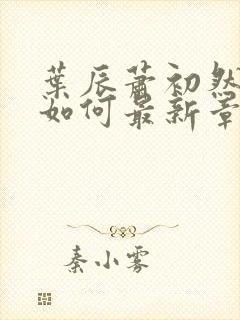 葉辰蕭初然
如何最新章
秦小雾